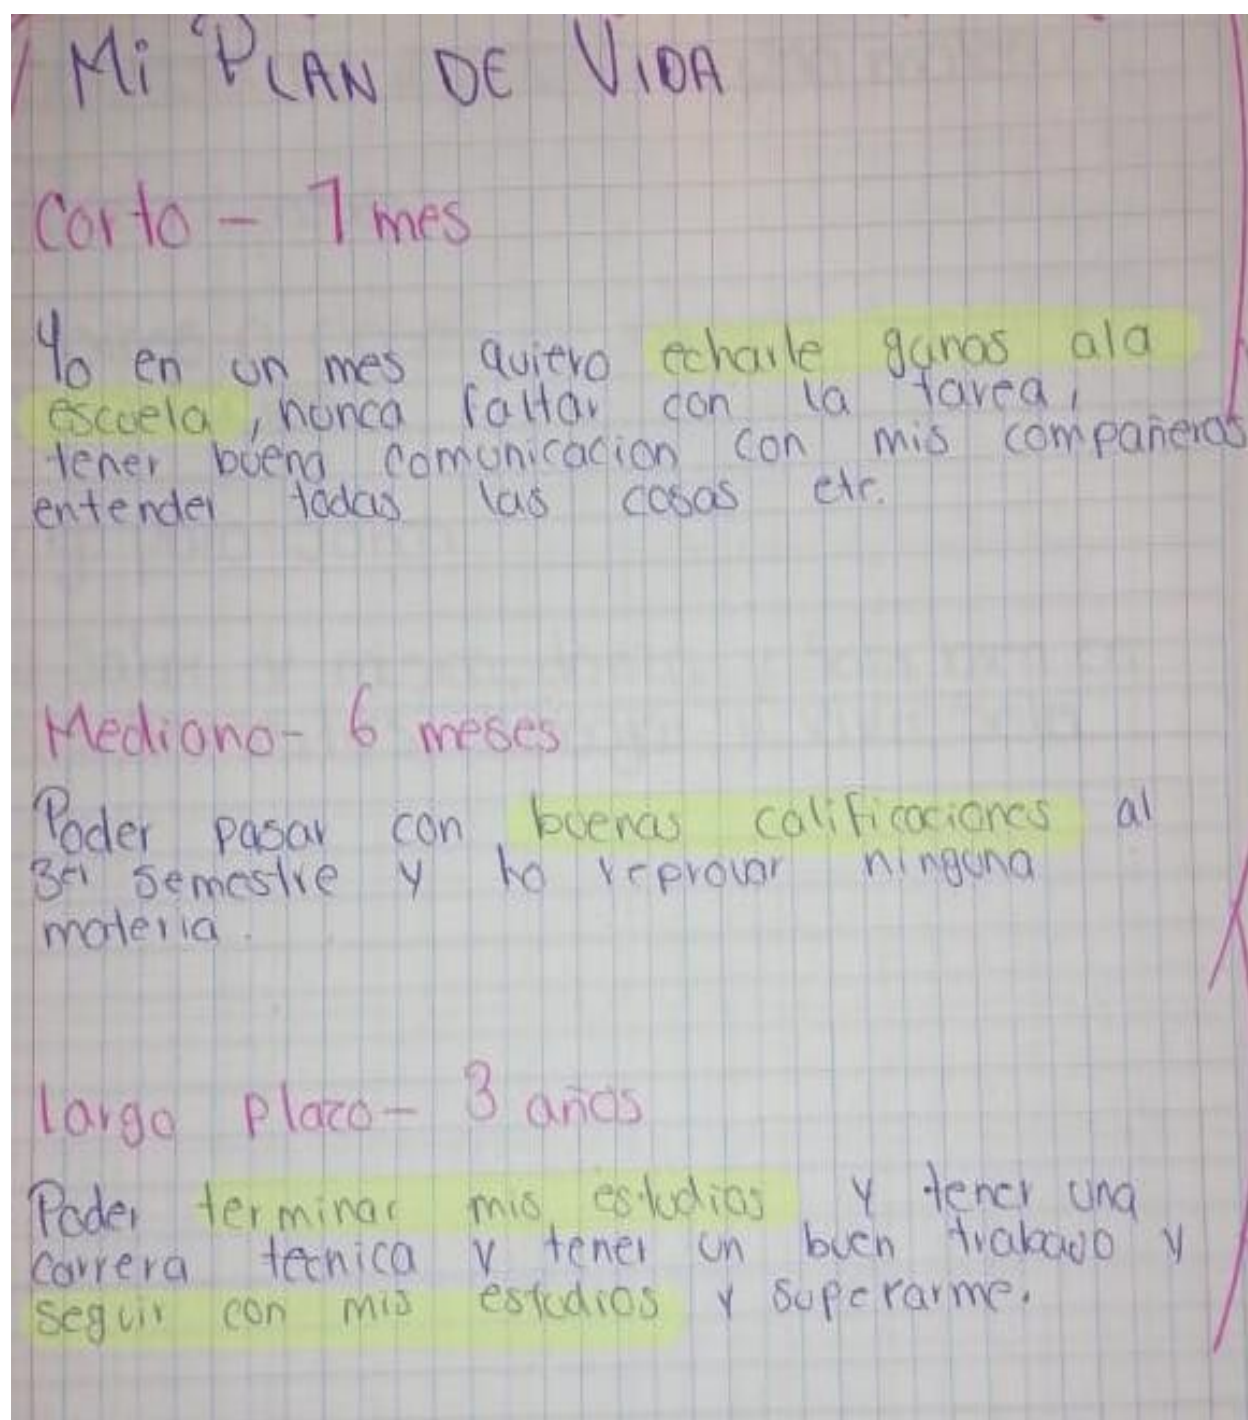 Mi PLAN DE VIDA
Corto - 1 mes
Yo en un mes quiero echarle ganas ala
escuela, nunca faltar con la tarea,
tener buena comunicacion con mis compañeros
entender todas las cosas etc.
Mediano- 6 meses
Poder pasar con buenas calificaciones al
3er semestre y no reprovar ninguna
materia.
largo plazo- 3 años
Poder terminar mis estudios y tener una
carrera tecnica y tener un buen trabajo y
seguir con mis estudios y superarme.